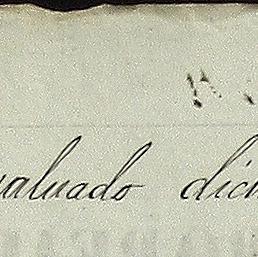 valuado dich